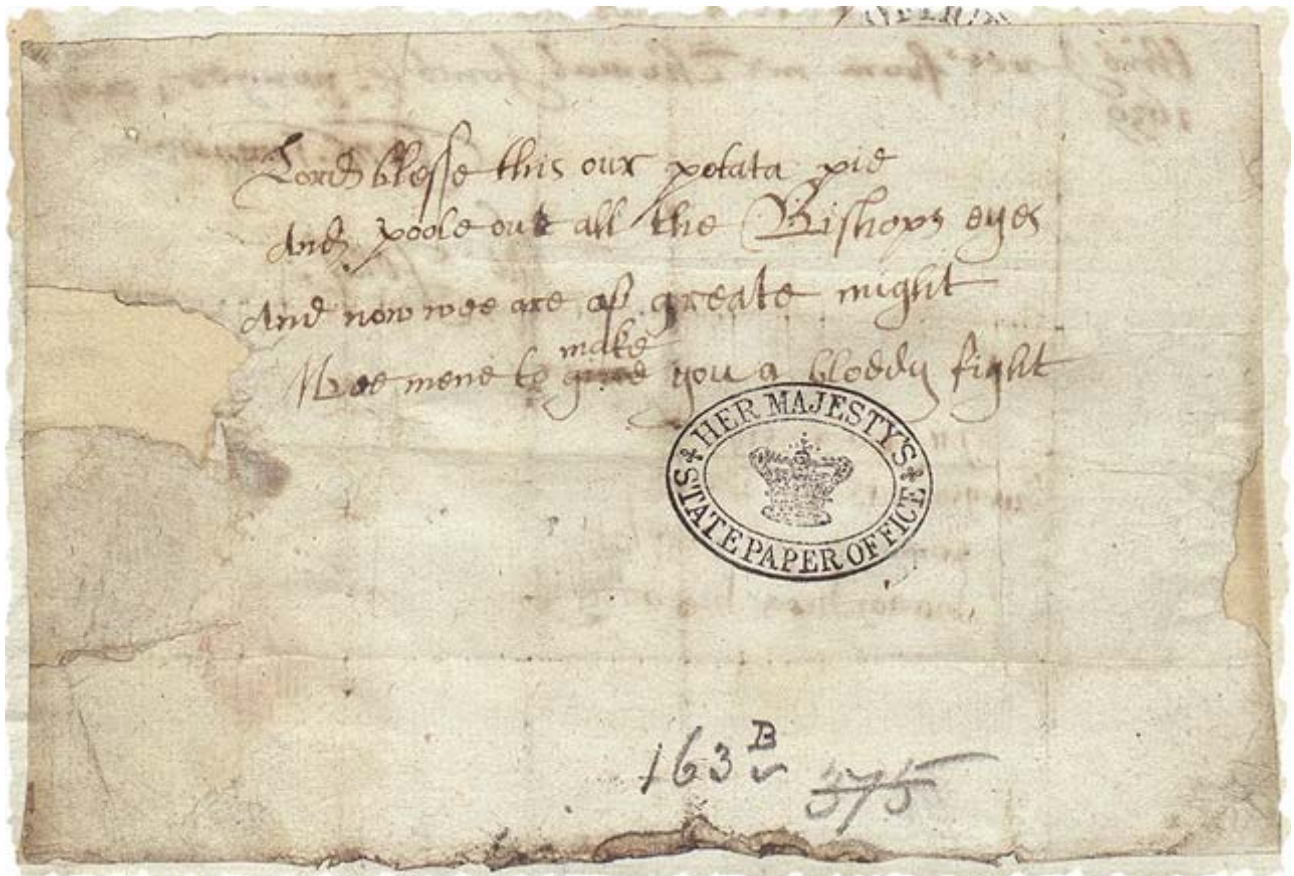 Lord blesse this our potata pie
And poole out all the Bishops eyes
And now wee are of greate might
Wee mene to make you a bloddy fight
HER MAJESTY'S
STATE PAPER OFFICE
163 B
375